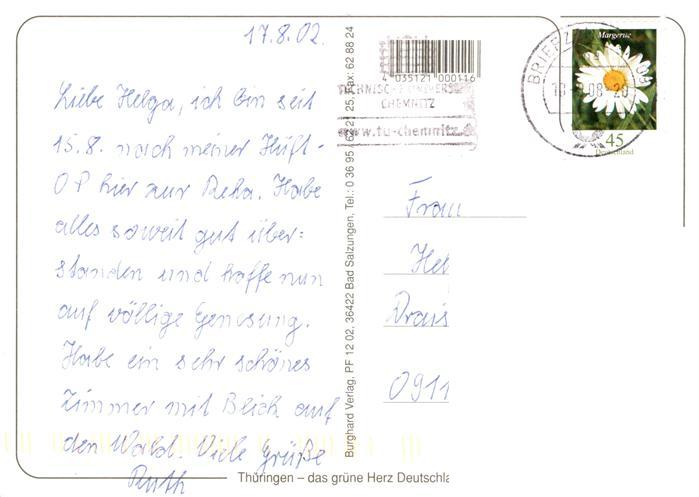 17.8.02.
Liebe Helga, ich bin seit
15.8. nach meiner Hüft-
OP hier zur Reha. Habe
alles soweit gut über-
standen und hoffe nun
auf völlige Genesung.
Habe ein sehr schönes
Zimmer mit Blick auf
den Wald. Viele Grüße
Ruth
Burghard Verlag, PF 12 02, 36422 Bad Salzungen, Tel.: 0 36 95 / 62 21 25, Fax: 62 88 24
4 035121 000116
TECHNISCHE UNIVERS
CHEMNITZ
www.tu-chemnitz.d
BRIEFZ
Margerite
45
Deutschland
Frau
Hel
Drais
0911
Thüringen – das grüne Herz Deutschla